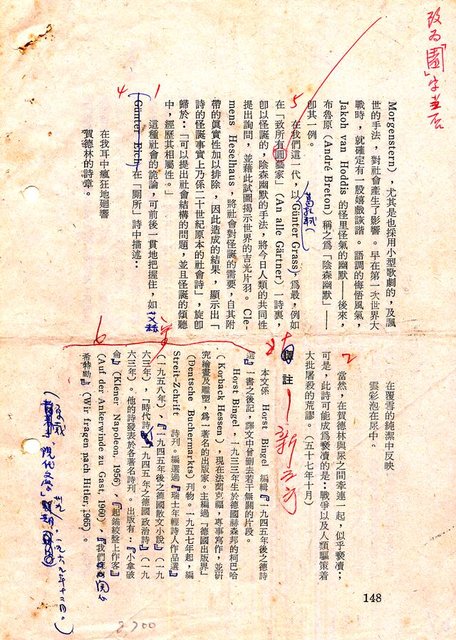 改為「園」字並言
Morgenstern)，尤其是也採用小型歌劇的，及諷
世的手法，對社會產生了影響。早在第一次世界大
戰時，就確定有一股嬉戲詼諧。語調的悔悟風氣，
Jakoh van Hoddis 的怪里怪氣的幽默——後來，
布魯原(André Breton)稱之為「陰森幽默」——
卽其一例。
5
在我們這一代，以 Günter Grass 為最，例如
在「致所有園藝家」(An alle Gärtner)一詩裏，
卽以怪誕的，陰森幽默的手法，將今日人類的共同性
提出詢問，並藉此試圖揭示世界的吉光片羽。Cle-
mens Heselhaus，將社會對怪誕的需要，自其附
帶的眞實性加以排除，因此造成的結果，顯示出「
詩的怪誕事實上乃係二十世紀原本的社會詩」，旋卽
歸於：「可以提出社會結構的問題，並且怪誕的傾聽
中，經歷其相屬性。」
4 1
這種社會的詭論，可前後一貫地把握住，如
Günter Eich 在「開所」詩中描述：
在我耳中瘋狂地廻響
賀德林的詩章。
在覆雪的純潔中反映
雲彩泡在尿中。
2
當然，在賀德林與尿之間牽連一起，似乎褻瀆；
可是，此詩可能成為褻瀆的是：戰爭以及人類驅策着
大批屠殺的荒謬。(五十七年十月)
譯註
本文係 Horst Bingel 編輯『一九四五年後之德詩
選』一書之後記，譯文中曾刪去若干無關的片段。
Horst Bingel，一九三三年生於德國赫森邦的柯巴哈
(Korbach Hessen)，現在法蘭克福，專事寫作，並硏
究繪畫及雕塑，為一著名的出版家。主編過『德國出版界』
(Deutsche Buchermarkts)刊物。一九五七年起，編
Streit-Zchrift 詩刊。編選過『瑞士年輕詩人作品選』
(一九五八年)，『一九四五年後之德國散文小說』(一九
六三年)，『時代詩，一九四五年之後德國政治詩』(一九
六三年)。他的詩發表於各著名詩刊。出版有：『小拿破
崙』(Kliner Napoleon, 1956)，『起錨絞盤上作客』
(Auf der Ankerwinde zu Gast, 1960)，『我們
希特勒』(Wir fragen nach Hitler, 1965)。
6
148
2,700